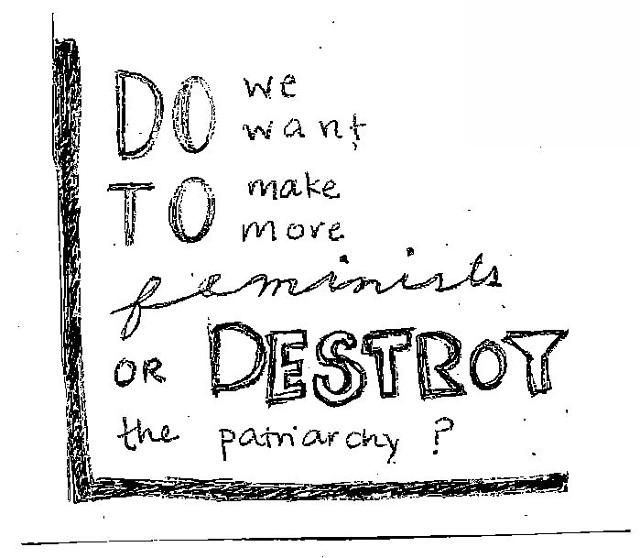 DO we
want
TO make
more
feminists
OR DESTROY
the patriarchy ?